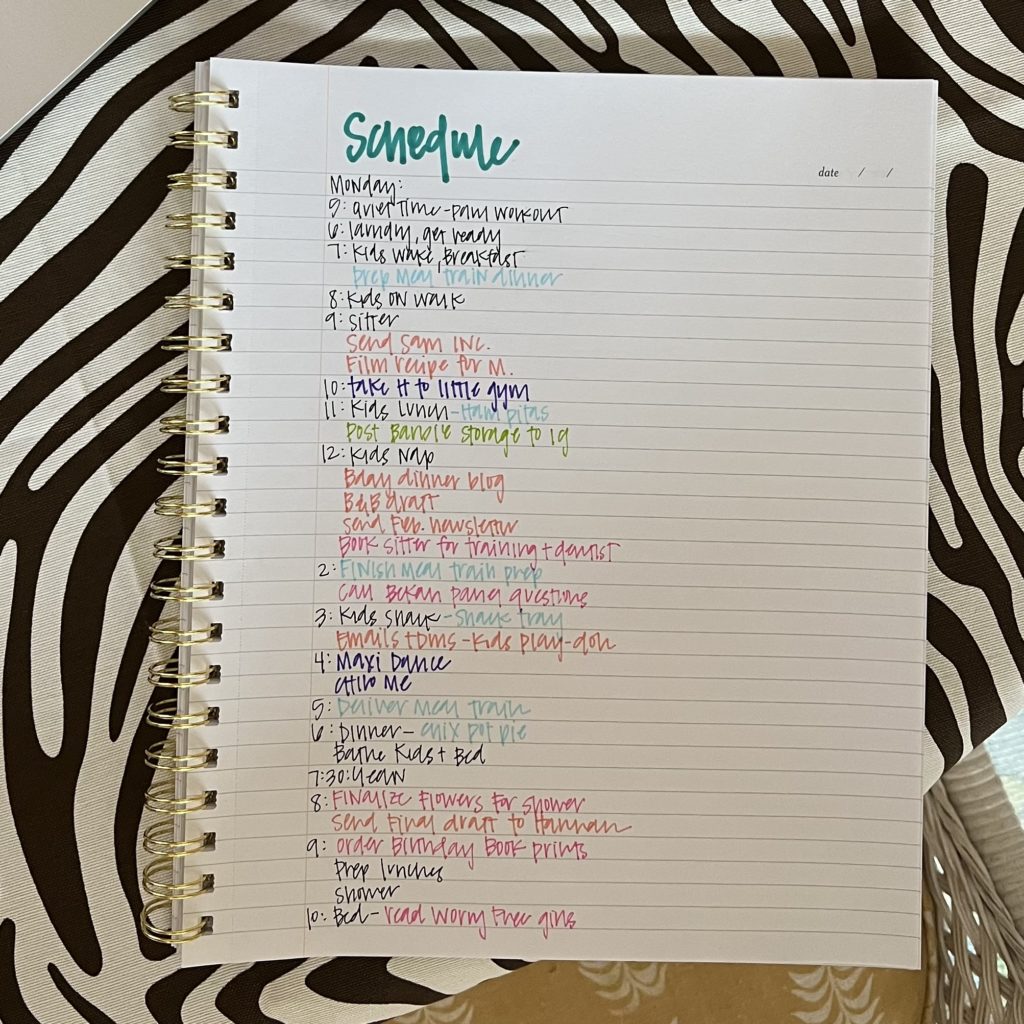 Schedule
date / /
Monday:
5: quiet time - pam workout
6: laundry, get ready
7: Kids wake, Breakfast
Prep meal train dinner
8: Kids on walk
9: Sitter
Send Sam INC.
Film recipe for M.
10: take H to little gym
11: Kids Lunch - Ham pitas
Post Barbie storage to ig
12: Kids Nap
Bday dinner blog
B&B draft
Send Feb. newsletter
Book sitter for training + dentist
2: Finish meal train prep
Call panel questions
3: Kids snack - snack tray
Emails + DMs - Kids play-doh
4: Maxi Dance
Me
5: Deliver meal train
6: Dinner - chix pot pie
Bathe Kids + Bed
7:30: Clean
8: Finalize Flowers for shower
Send Final draft to Hannah
9: order Birthday Book prints
Prep lunches
Shower
10: Bed - read worry free girls